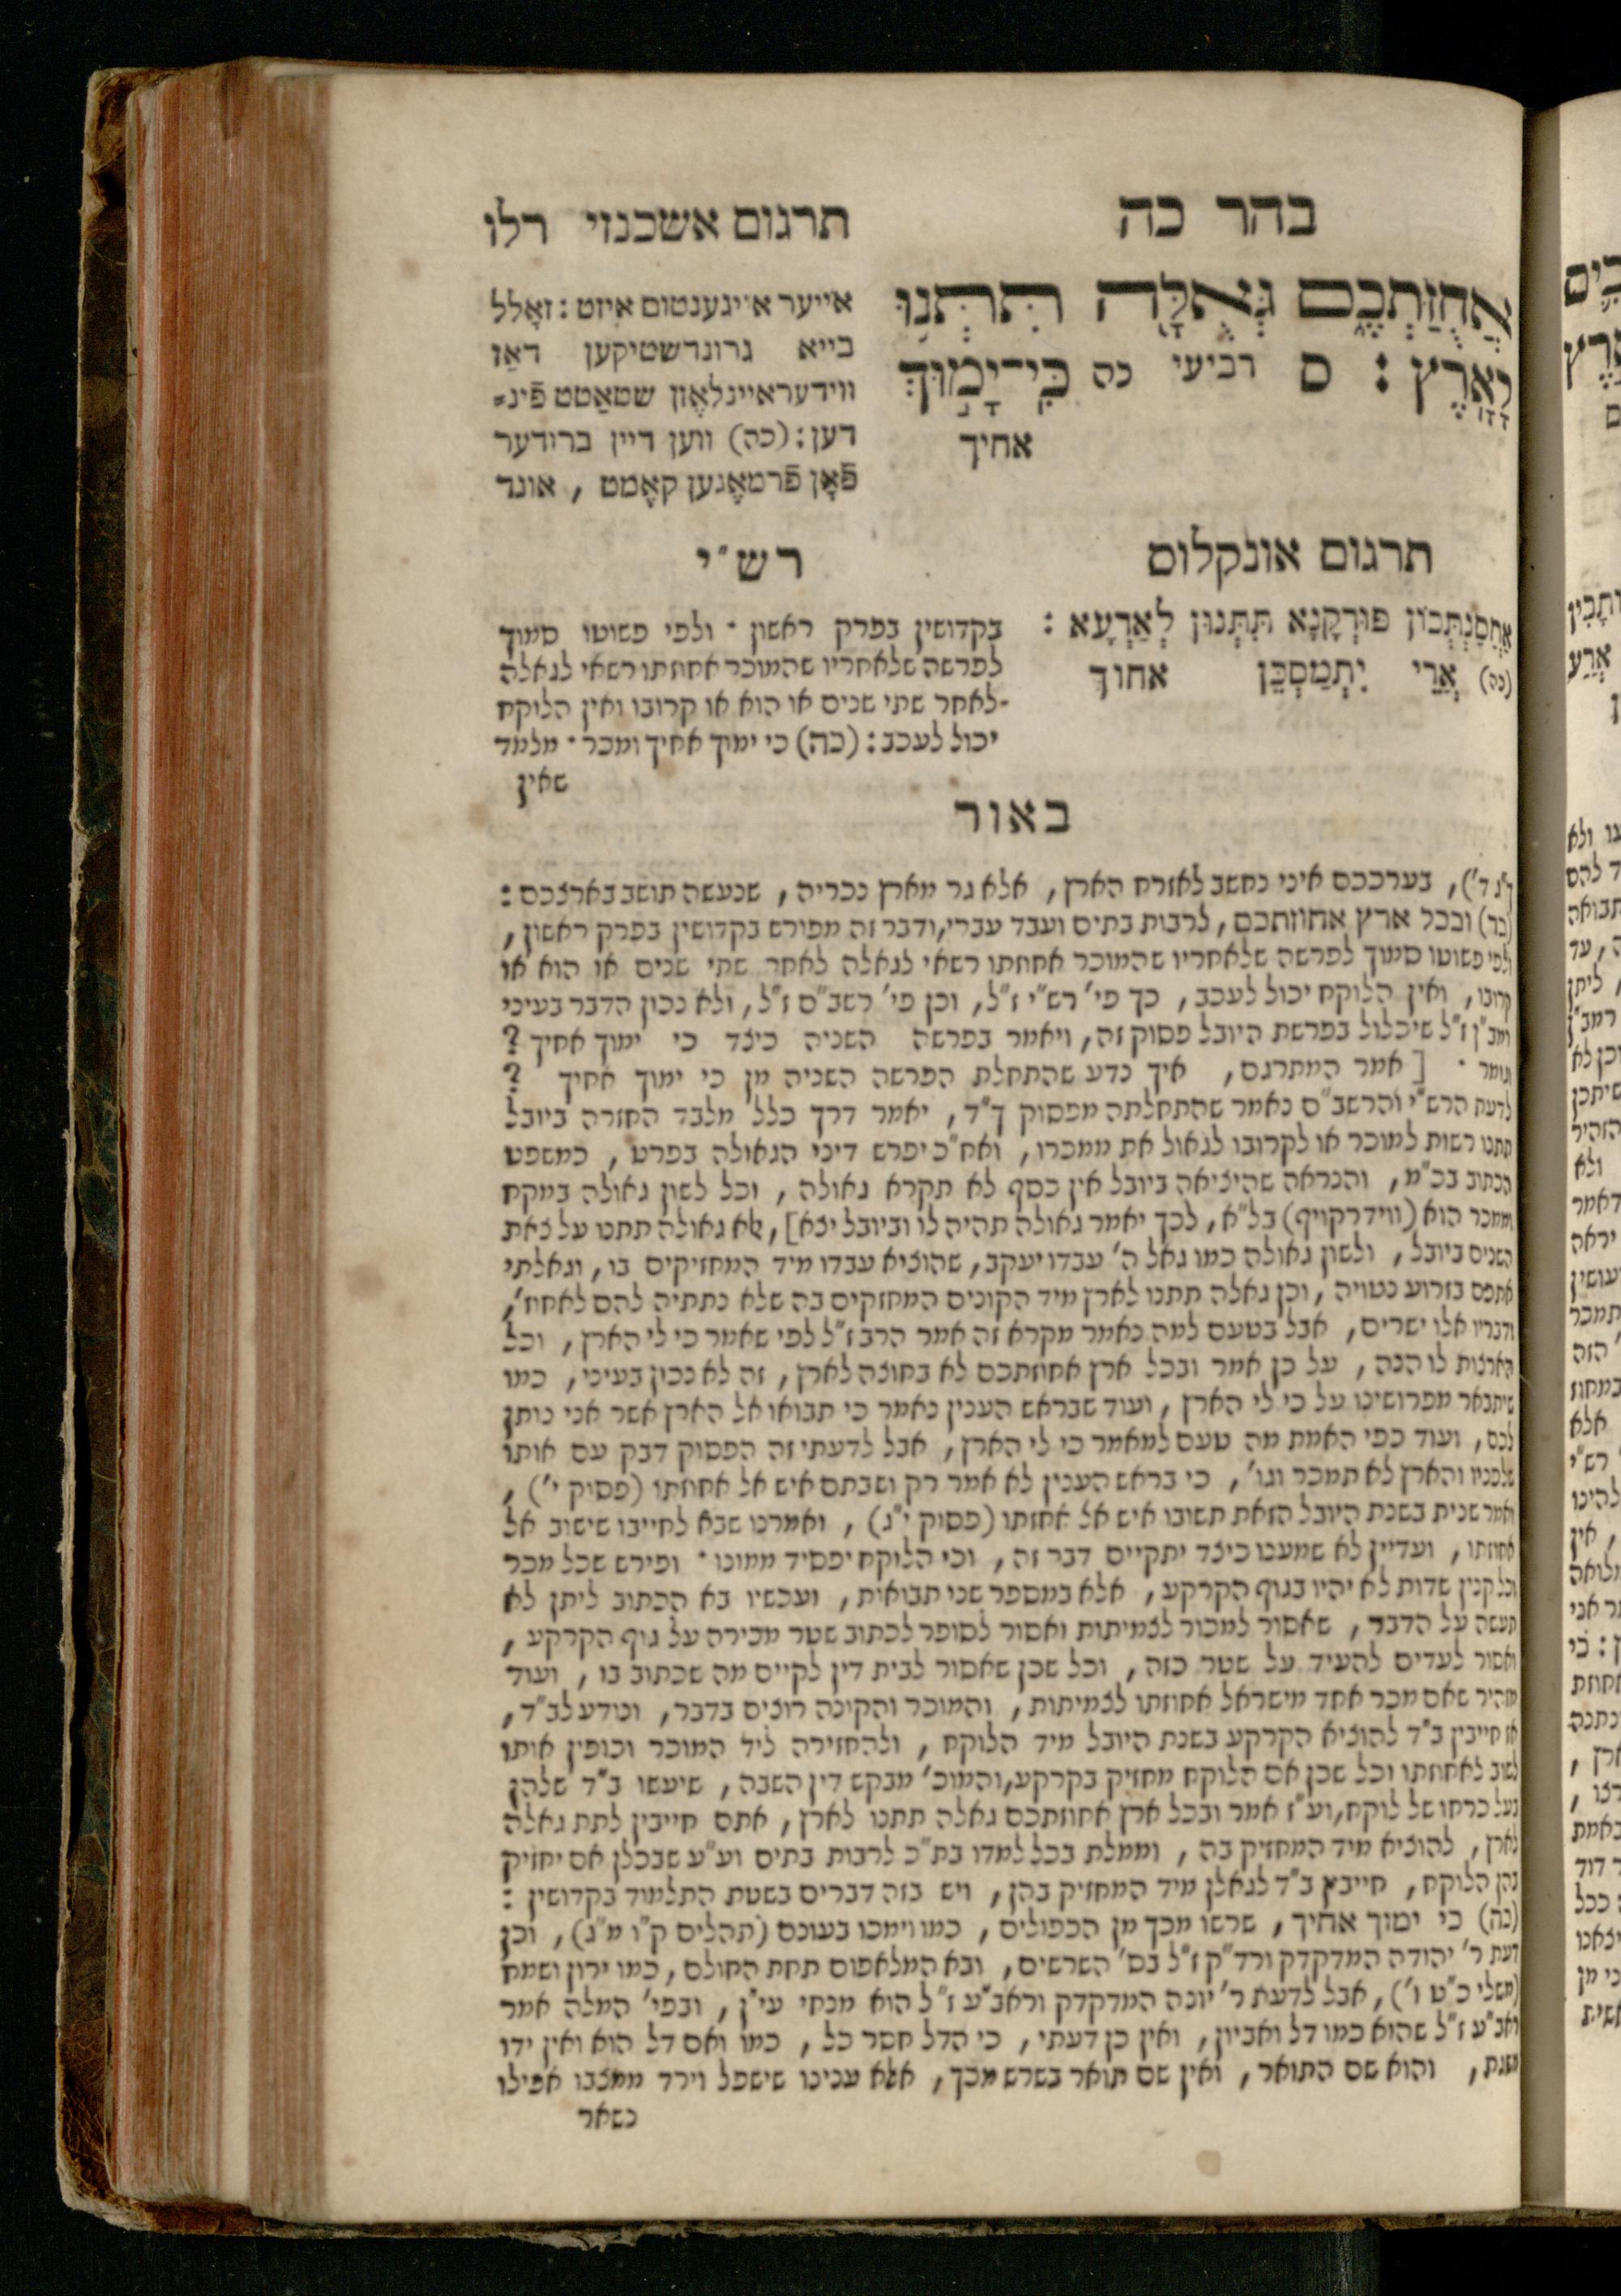 בהר כה
תרגום אשכנזי רלו
אֲחֻזַּתְכֶם גְּאֻלָּה תִּתְּנוּ
לָאָרֶץ : ס רביעי כה כִּי־יָמוּךְ
אחיך
אייער איגענטום איזט : זאָלל
בייא גרונדשטיקען דאַז
ווידעראיינלאָזן שטאַטט פֿינ=
דען : (כה) ווען דיין ברודער
פֿאָן פֿרמאָגען קאָמט , אונד
תרגום אונקלוס
אַחְסַנְתְּכוֹן פּוּרְקָנָא תִּתְּנוּן לְאַרְעָא :
(כה) אֲרֵי יִתְמַסְכֵּן אחוך
רש"י
בקדושין בפרק ראשון · ולפי פשוטו סמוך
לפרשה שלאחריו שהמוכר אחוזתו רשאי לגאלה
לאחר שתי שנים או הוא או קרובו ואין הלוקח
יכול לעכב : (כה) כי ימוך אחיך ומכר · מלמד
שאין
באור
ד'), בערככם איני נחשב לאזרח הארץ, אלא גר מארץ נכריה, שנעשה תושב בארצכם :
(כד) ובכל ארץ אחוזתכם, לרבות בתים ועבד עברי, ודבר זה מפורש בקדושין בפרק ראשון,
ולפי פשוטו סמוך לפרשה שלאחריו שהמוכר אחוזתו רשאי לגאלה לאחר שתי שנים או הוא או
קרובו, ואין הלוקח יכול לעכב, כך פי' רש"י ז"ל, וכן פי' רשב"ם ז"ל, ולא נכון הדבר בעיני
רמב"ן ז"ל שיכלול בפרשת היובל פסוק זה, ויאמר בפרשה השניה כיצד כי ימוך אחיך ?
וגומר · [אמר המתרגם, איך נדע שהתחלת הפרשה השניה מן כי ימוך אחיך ?
לדעת הרש"י והרשב"ם נאמר שהתחלתה מפסוק ך"ד, יאמר דרך כלל מלבד החזרה ביובל
תתנו רשות למוכר או לקרובו לגאול את ממכרו, ואח"כ יפרש דיני הגאולה בפרט, כמשפט
הכתוב בכ"מ, והנראה שהיציאה ביובל אין כסף לא תקרא גאולה, וכל לשון גאולה במקח
וממכר הוא (ווידרקויף) בל"א, לכך יאמר גאולה תהיה לו וביובל יצא], לא גאולה תתנו על צאת
השנים ביובל, ולשון גאולה כמו גאל ה' עבדו יעקב, שהוציא עבדו מיד המחזיקים בו, וגאלתי
אתכם בזרוע נטויה, וכן גאלה תתנו לארץ מיד הקונים המחזקים בה שלא נתתיה להם לאחוז',
ודבריו אלו ישרים, אבל בטעם למה נאמר מקרא זה אמר הרב ז"ל לפי שאמר כי לי הארץ, וכל
הארצות לו הנה, על כן אמר ובכל ארץ אחוזתכם לא בחוצה לארץ, זה לא נכון בעיני, כמו
שיתבאר מפרושינו על כי לי הארץ, ועוד שבראש הענין נאמר כי תבואו אל הארץ אשר אני נותן
לכם, ועוד כפי האמת מה טעם למאמר כי לי הארץ, אבל לדעתי זה הפסוק דבק עם אותו
שלפניו והארץ לא תמכר וגו', כי בראש הענין לא אמר רק ושבתם איש אל אחוזתו (פסוק י'),
ואמר שנית בשנת היובל הזאת תשובו איש אל אחזתו (פסוק י"ג), ואמרנו שבא לחייבו שישוב אל
אחוזתו, ועדיין לא שמענו כיצד יתקיים דבר זה, וכי הלוקח יפסיד ממונו · ופירש שכל מכר
וכל קנין שדות לא יהיו בגוף הקרקע, אלא במספר שני תבואות, ועכשיו בא הכתוב ליתן לא
תעשה על הדבר, שאסור למכור לצמיתות ואסור לסופר לכתוב שטר מכירה על גוף הקרקע,
ואסור לעדים להעיד על שטר כזה, וכל שכן שאסור לבית דין לקיים מה שכתוב בו, ועוד
מזהיר שאם מכר אחד מישראל אחוזתו לצמיתות, והמוכר והקונה רוצים בדבר, ונודע לב"ד,
אז חייבין ב"ד להוציא הקרקע בשנת היובל מיד הלוקח, ולהחזירה ליד המוכר וכופין אותו
לשוב לאחוזתו וכל שכן אם הלוקח מחזיק בקרקע, והמוכ' מבקש דין השבה, שיעשו ב"ד שלהן
בעל כרחו של לוקח, וע"ז אמר ובכל ארץ אחוזתכם גאלה תתנו לארץ, אתם חייבין לתת גאלה
לארץ, להוציא מיד המחזיק בה, וממלת בכל למדו בת"כ לרבות בתים וע"ע שבכלן אם יחזיק
בהן הלוקח, חייבין ב"ד לגאלן מיד המחזיק בהן, ויש בזה דברים בשטת התלמוד בקדושין :
(כה) כי ימוך אחיך, שרשו מכך מן הכפולים, כמו וימכו בעונם (תהלים ק"ו מ"ג), וכן
דעת ר' יהודה המדקדק ורד"ק ז"ל בס' השרשים, ובא המלאפום תחת החולם, כמו ירון ושמח
(משלי כ"ט ו'), אבל לדעת ר' יונה המדקדק וראב"ע ז"ל הוא מנחי עי"ן, ובפי' המלה אמר
ראב"ע ז"ל שהוא כמו דל ואביון, ואין כן דעתי, כי הדל חסר כל, כמו ואם דל הוא ואין ידו
משגת, והוא שם התואר, ואין שם תואר בשרש מכך, אלא ענינו שישפל וירד ממצבו אפילו
כשאר